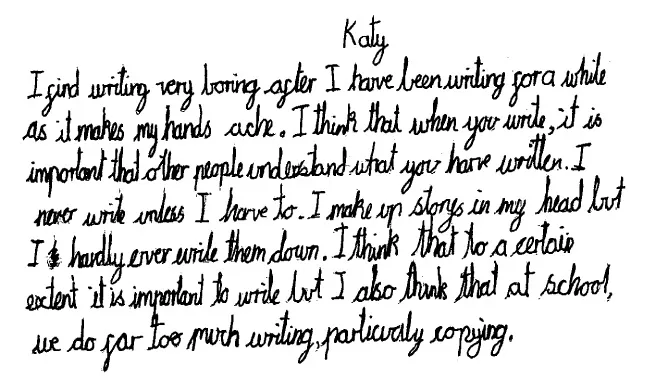 Katy
I find writing very boring after I have been writing for a while
as it makes my hands ache. I think that when you write, it is
important that other people understand what you have written. I
never write unless I have to. I make up storys in my head but
I hardly ever write them down. I think that to a certain
extent it is important to write but I also think that at school,
we do far too much writing, particularly copying.